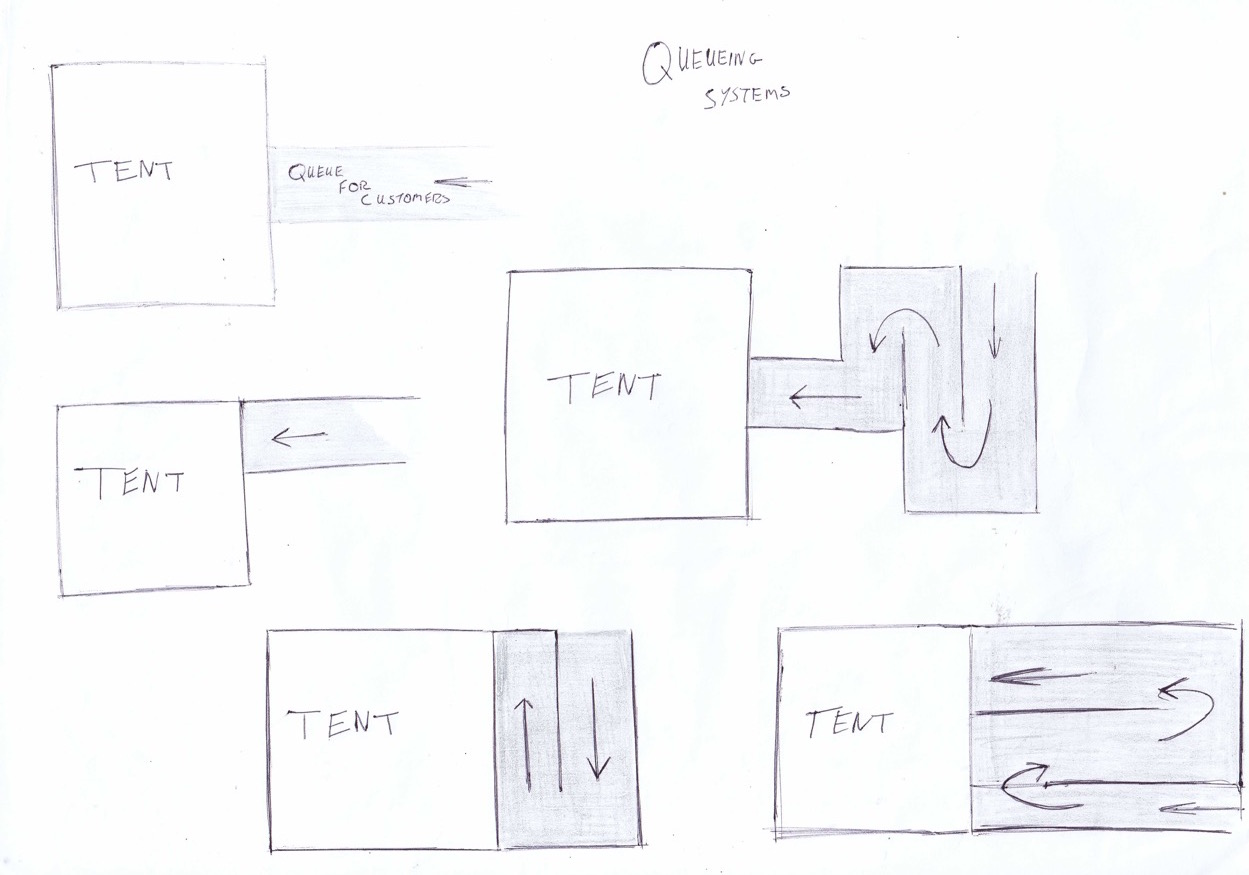 QUEUEING
SYSTEMS
TENT
QUEUE
FOR
CUSTOMERS
TENT
TENT
TENT
TENT